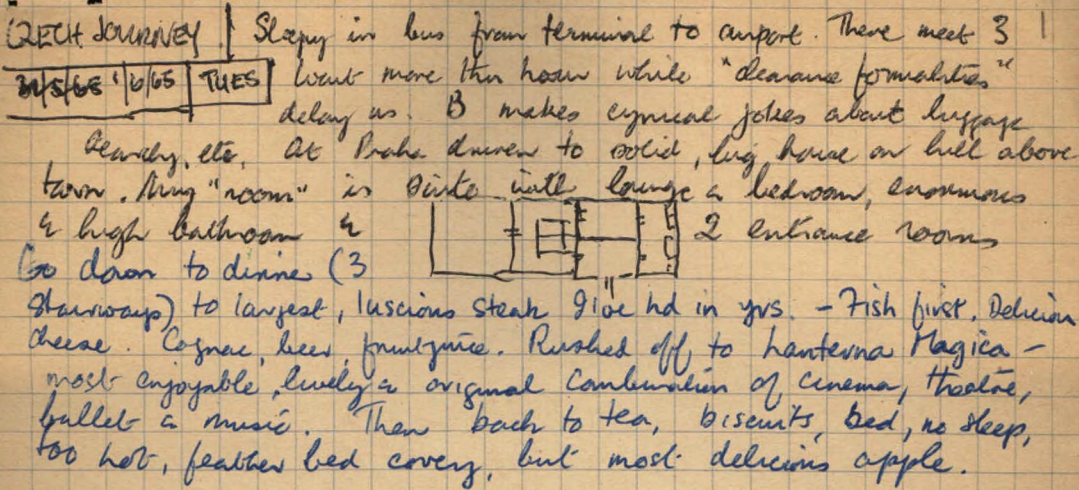 CZECH JOURNEY Sleepy in bus from terminal to airport. There meet 3 1
31/5/65 1/6/65 TUES Wait more than hour while "clearance formalities"
delay us. B makes cynical jokes about luggage
already, etc. At Praha driven to solid, big house on hill above
town. My "room" is suite with lounge & bedroom, enormous
& high bathroom & 2 entrance rooms
Go down to dinner (3
stairways) to largest, luscious steak I've had in yrs. - Fish first. Delicious
cheese. Cognac, beer, fruitjuice. Rushed off to Lanterna Magica -
most enjoyable, lively & original combination of cinema, theatre,
ballet & music. Then back to tea, biscuits, bed, no sleep,
too hot, feather bed covery, but most delicious apple.